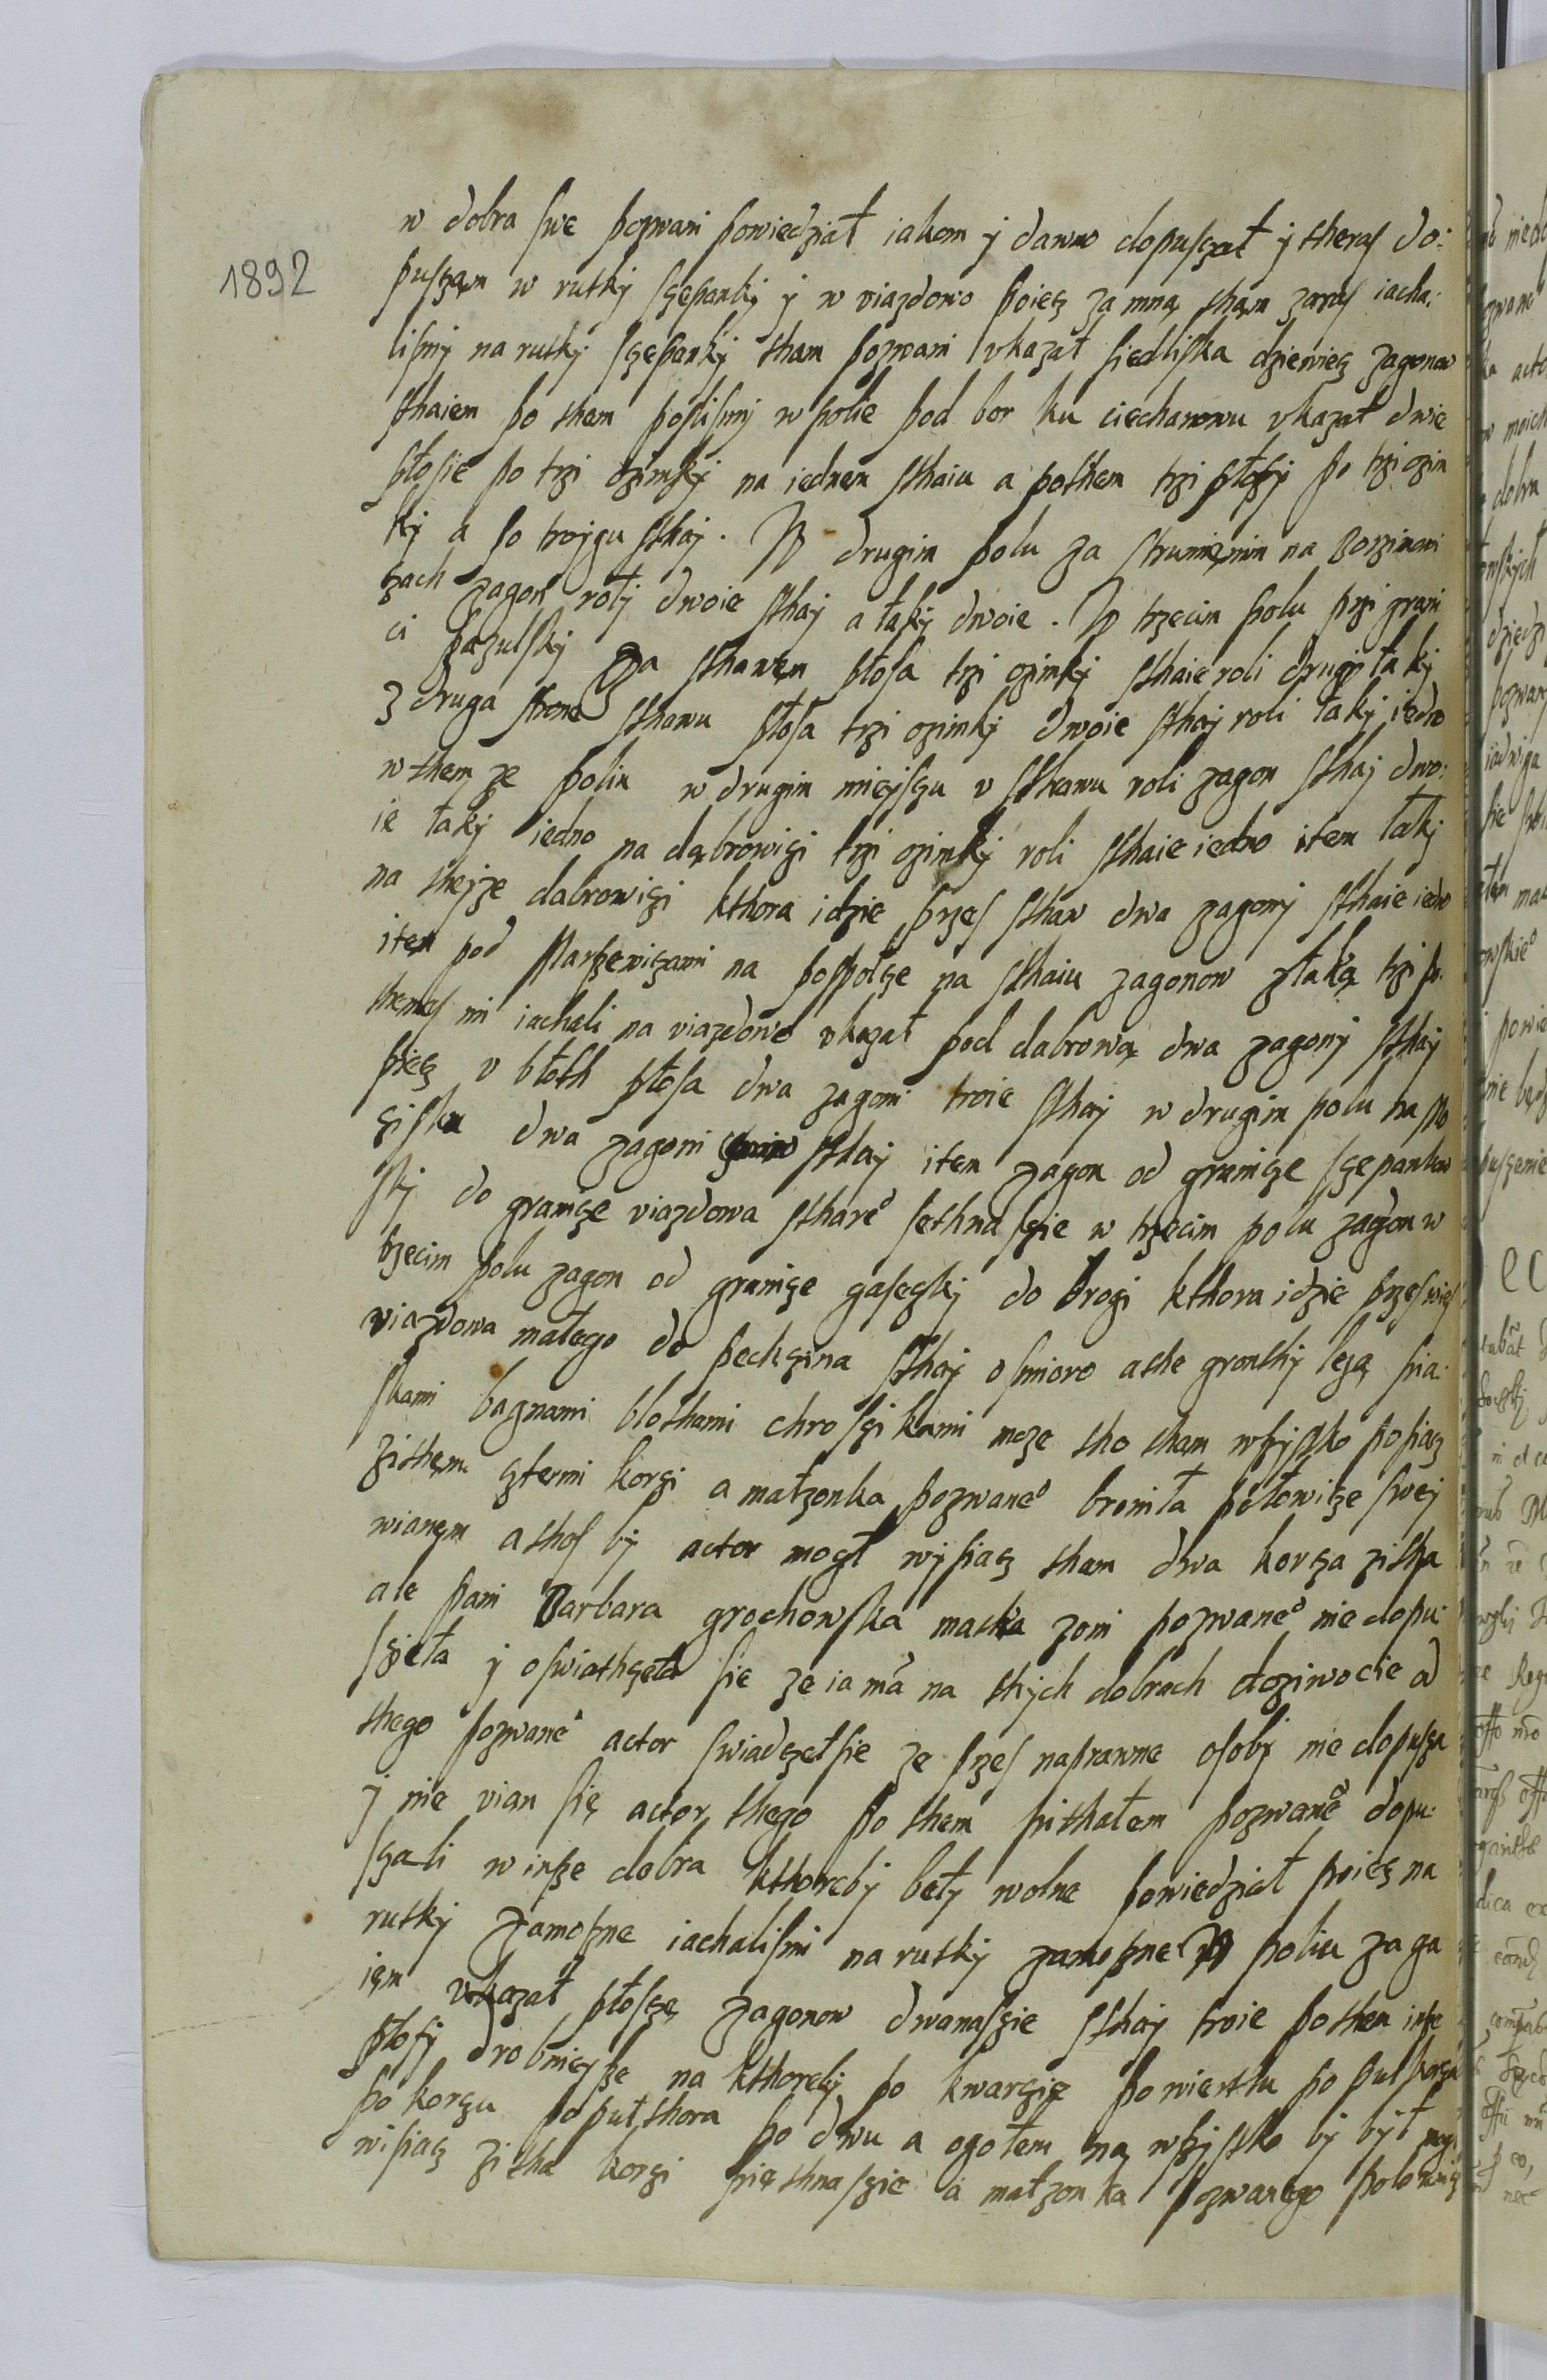 1892
w dobra swe pozwani powiedział iakom y dawno dopusczał y theras do:
pusczam w rutky sczepanky y w viazdowo poiecz za mną tham zaras iacha:
lismy na rutky sczepanky tham pozwani vkazał siedliska dziewiecz zagonow
sthaiem po them poslismy w polie pod bor ku ciechanowu vkazał dwie
płosie po trzi ozimky na iednem sthaiu a pothem trzi płosy po trzi ozim
ky a po troygu sthaj. W drugim polu za strumięnim na
czach zagon rolj dwoie sthaj a łąky dwoie. W trzecim polu przi grani
ci pazulsky Za sthawem płosa trzi ozimky sthaie roli drugi łaky
Z druga strone sthawu płosa trzi ozimky dwoie sthaj roli łaky iedno
w them ze poliu w drugim mieysczu v sthawu roli zagon sthaj dwo:
ie łaky iedno na dąbrowiczi trzi ozimky roli sthaie iedno item łaky
na theyze dabrowiczi kthora idzie przes sthaw dwa zagony sthaie iedno
item pod Marszewiczami na pospolcze na sthaiu zagonow złąką trzi po
themes mi iachali na viazdowo vkazał pod dabrową dwa zagony sthaj
piecz v błoth płosa dwa zagoni troie sthaj w drugim polu na
ziska dwa zagoni sthaj item zagon od granicze sczepankow
sky do granicze viazdowa stharego sethnasczie w trzecim polu zagon w
trzecim polu zagon od granicze gaseczky do drogi kthora idzie przes wies
viazdowa małego do pechczina sthaj osmioro a the gronthy leżą pia:
skami bagnami blothami chrosczikami moze tho tham wszysthko posiacz
zithem cztermi korczi a małzonka pozwanego broniła połowicze swey
wianem a thos by actor mogł wysiacz tham dwa korcza zitha
ale pani Barbara grochowska matka zoni pozwanego nie dopu:
sczeła y oswiathczeła sie ze ia mã na thych dobrach doziwocie od
thego pozwanego actor swiadczełsie ze przes naprawne osoby nie dopuscza
y nie viąn się actor thego po them pithałem pozwanego dopu:
sczali w insze dobra kthoreby beły wolne powiedział poiecz na
rutky zamoszne iachalismi na rutky zamoszne W poliu za ga
iem vkazał płosczę zagonow dwanasczie sthaj troie pothem insze
płosy drobnieysze na kthorey po kwarczie po wierthu po puł korcza
po korczu po pułthora po dwu a ogołem na wszystko by był mogł
wisiacz zitha korczi pięthnasczie a małzonka pozwanego połowicz